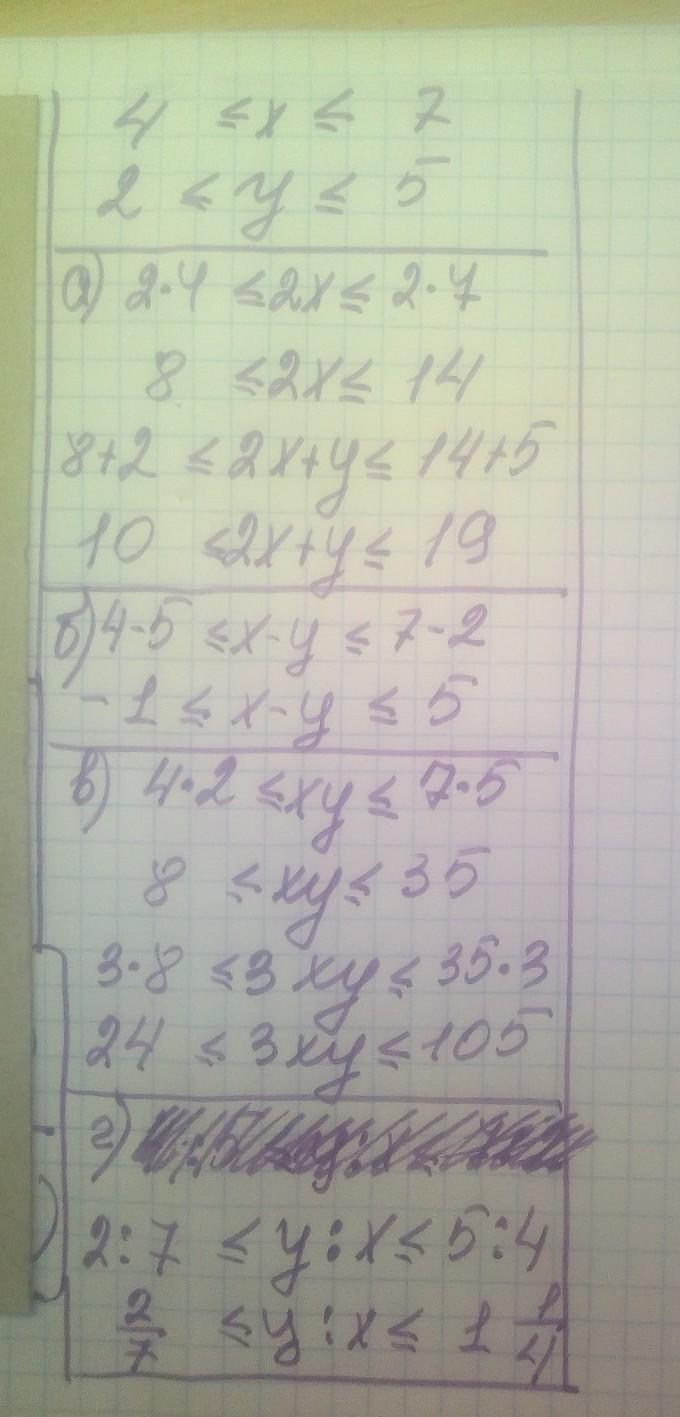 4 ≤ x ≤ 7
2 ≤ y ≤ 5
а) 2·4 ≤ 2x ≤ 2·7
8 ≤ 2x ≤ 14
8+2 ≤ 2x+y ≤ 14+5
10 ≤ 2x+y ≤ 19
б) 4-5 ≤ x-y ≤ 7-2
-1 ≤ x-y ≤ 5
в) 4·2 ≤ xy ≤ 7·5
8 ≤ xy ≤ 35
3·8 ≤ 3xy ≤ 35·3
24 ≤ 3xy ≤ 105
г)
2:7 ≤ y:x ≤ 5:4
2/7 ≤ y:x ≤ 1 1/4